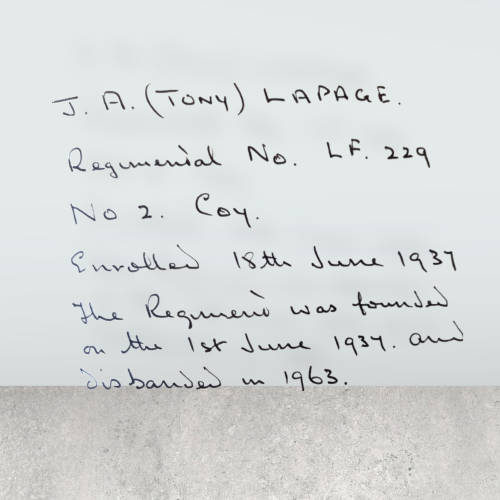 J. A. (TONY) LAPAGE.
Regimental No. LF. 229
No 2. Coy.
Enrolled 18th June 1937
The Regiment was founded
on the 1st June 1937. and
disbanded in 1963.